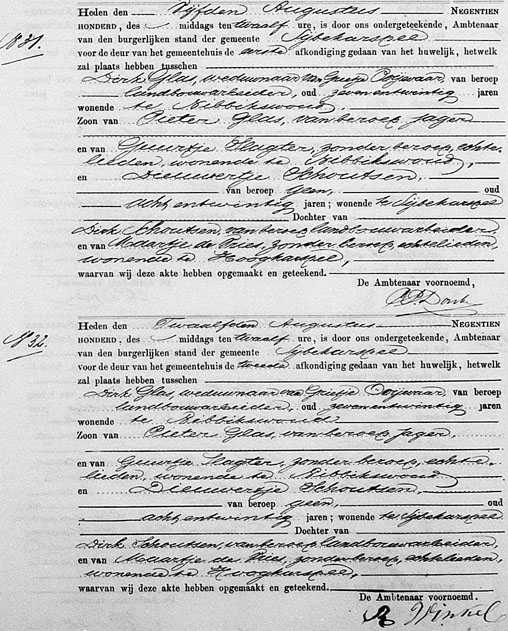 Heden den Vijfden Augustus NEGENTIEN
No 31.
HONDERD, des s. middags ten twaalf ure, is door ons ondergeteekende, Ambtenaar
van den burgerlijken stand der gemeente Sijbekarspel
voor de deur van het gemeentehuis de eerste afkondiging gedaan van het huwelijk, hetwelk
zal plaats hebben tusschen
Dirk Glas, weduwnaar van Grietje Ooijevaar, van beroep
landbouwarbeider, oud zevenentwintig jaren
wonende te Nibbikswoud,
Zoon van Pieter Glas, van beroep jager
en van Guurtje Slagter, zonder beroep, echte-
lieden, wonende te Nibbikswoud,
en Dieuwertje Schoutsen,
van beroep geen, oud
achtentwintig jaren; wonende te Sijbekarspel
Dochter van
Dirk Schoutsen, van beroep landbouwarbeider,
en van Maartje de Vries, zonder beroep, echtelieden,
wonende te Hoogkarspel,
waarvan wij deze akte hebben opgemaakt en geteekend.
De Ambtenaar voornoemd,
Heden den Twaalfden Augustus NEGENTIEN
No 32.
HONDERD, des s. middags ten twaalf ure, is door ons ondergeteekende, Ambtenaar
van den burgerlijken stand der gemeente Sijbekarspel
voor de deur van het gemeentehuis de tweede afkondiging gedaan van het huwelijk, hetwelk
zal plaats hebben tusschen
Dirk Glas, weduwnaar van Grietje Ooijevaar, van beroep
landbouwarbeider, oud zevenentwintig jaren
wonende te Nibbikswoud,
Zoon van Pieter Glas, van beroep jager,
en van Guurtje Slagter, zonder beroep, echte-
lieden, wonende te Nibbikswoud,
en Dieuwertje Schoutsen,
van beroep geen, oud
achtentwintig jaren; wonende te Sijbekarspel
Dochter van
Dirk Schoutsen, van beroep landbouwarbeider,
en van Maartje de Vries, zonder beroep, echtelieden,
wonende te Hoogkarspel,
waarvan wij deze akte hebben opgemaakt en geteekend.
De Ambtenaar voornoemd.
Winkel